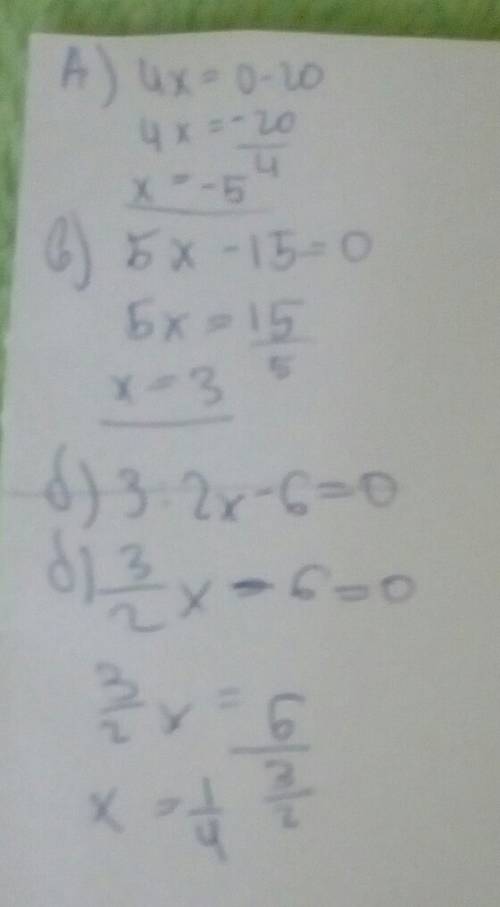 А) 4x = 0-20
4x = -20/4
x = -5
в) 5x - 15 = 0
5x = 15/5
x = 3
б) 3 2x - 6 = 0
б) 3/2 x - 6 = 0
3/2 x = 6/(3/2)
x = 1/4